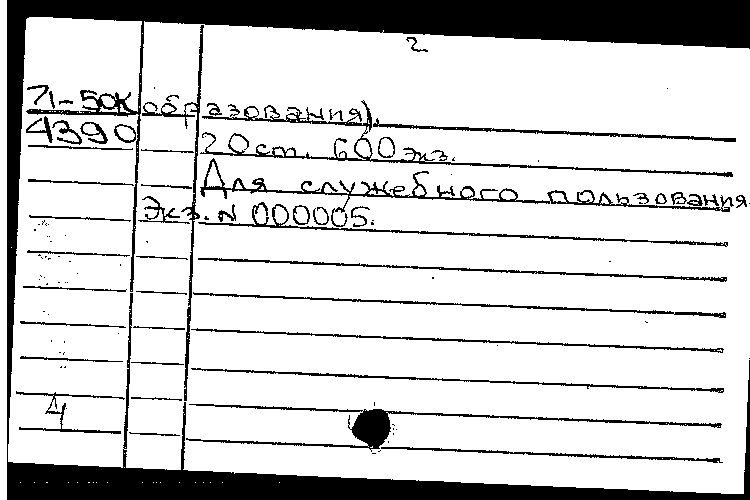 2
71-50K образования).
4390 20 ст. 600 экз.
Для служебного пользования
Экз. N 000005.
4